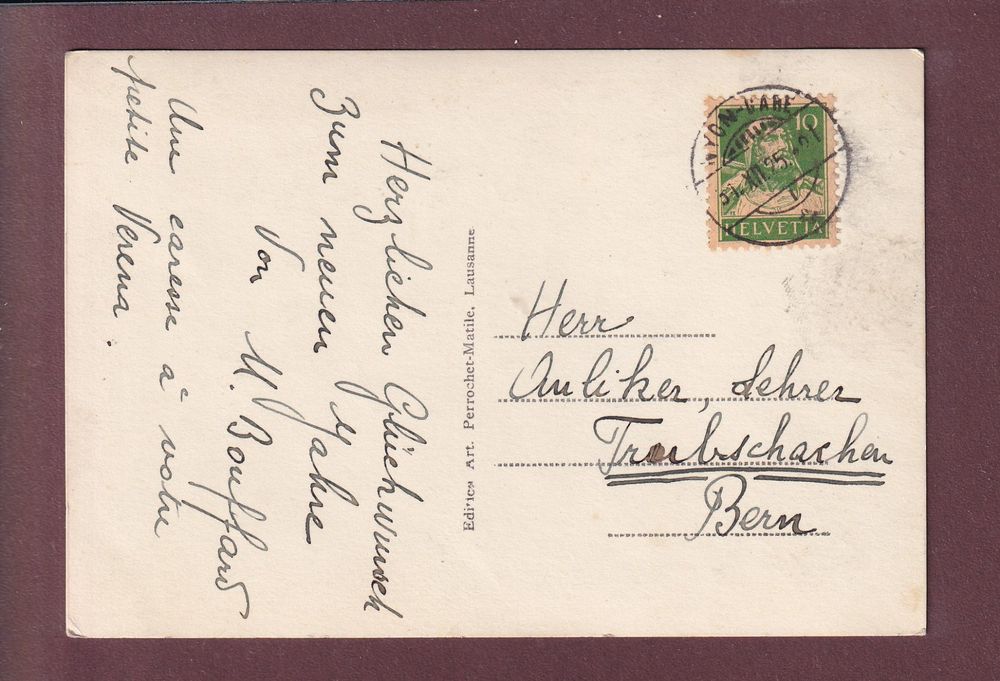 Herzlichen Glückwunsch
Zum neuen Jahre
Von M. Bouffard
Une caresse à votre
petite Verena.
Edition Art. Perrochet-Matile, Lausanne
NYON-GARE
31.XII.25.
10
HELVETIA
Herr
Auliker, Lehrer
Trubschachen
Bern